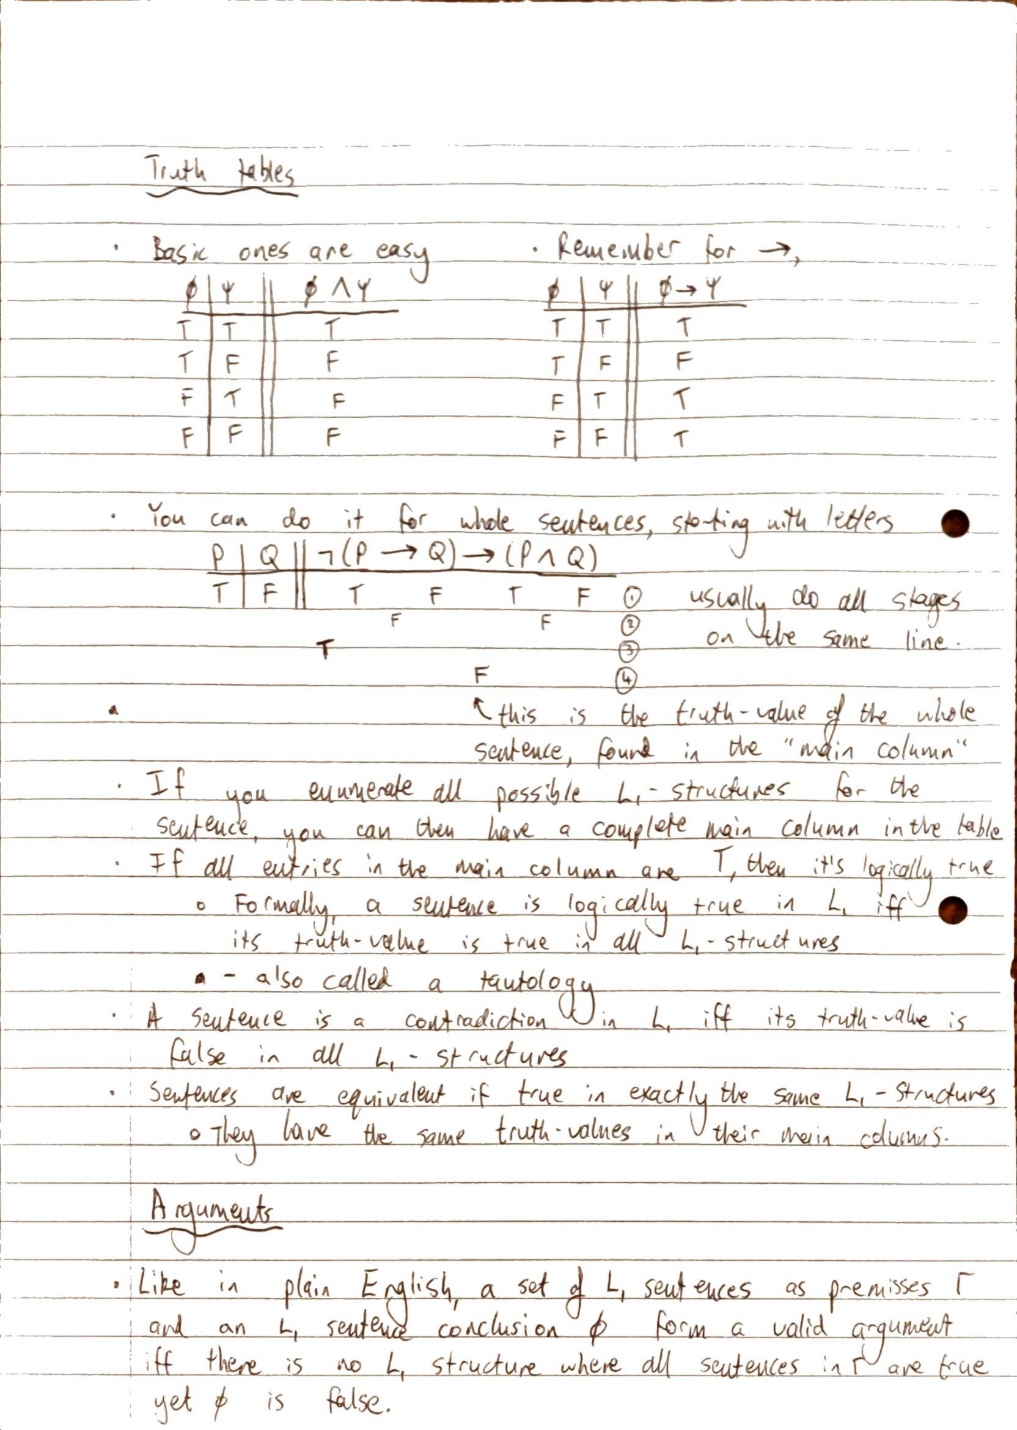 Truth tables
· Basic ones are easy
ϕ | ψ || ϕ ∧ ψ
T | T || T
T | F || F
F | T || F
F | F || F
· Remember for →,
ϕ | ψ || ϕ → ψ
T | T || T
T | F || F
F | T || T
F | F || T
· You can do it for whole sentences, starting with letters
P | Q || ¬(P → Q) → (P ∧ Q)
T | F || T F T F ① usually do all stages
F F ② on the same line.
T ③
F ④
↖ this is the truth-value of the whole
sentence, found in the "main column"
· If you enumerate all possible L₁-structures for the
sentence, you can then have a complete main column in the table
· If all entries in the main column are T, then it's logically true
o Formally, a sentence is logically true in L₁ iff
its truth-value is true in all L₁-structures
- also called a tautology
· A sentence is a contradiction in L₁ iff its truth-value is
false in all L₁-structures
· Sentences are equivalent if true in exactly the same L₁-structures
o They have the same truth-values in their main columns.
Arguments
· Like in plain English, a set of L₁ sentences as premisses Γ
and an L₁ sentence conclusion ϕ form a valid argument
iff there is no L₁ structure where all sentences in Γ are true
yet ϕ is false.